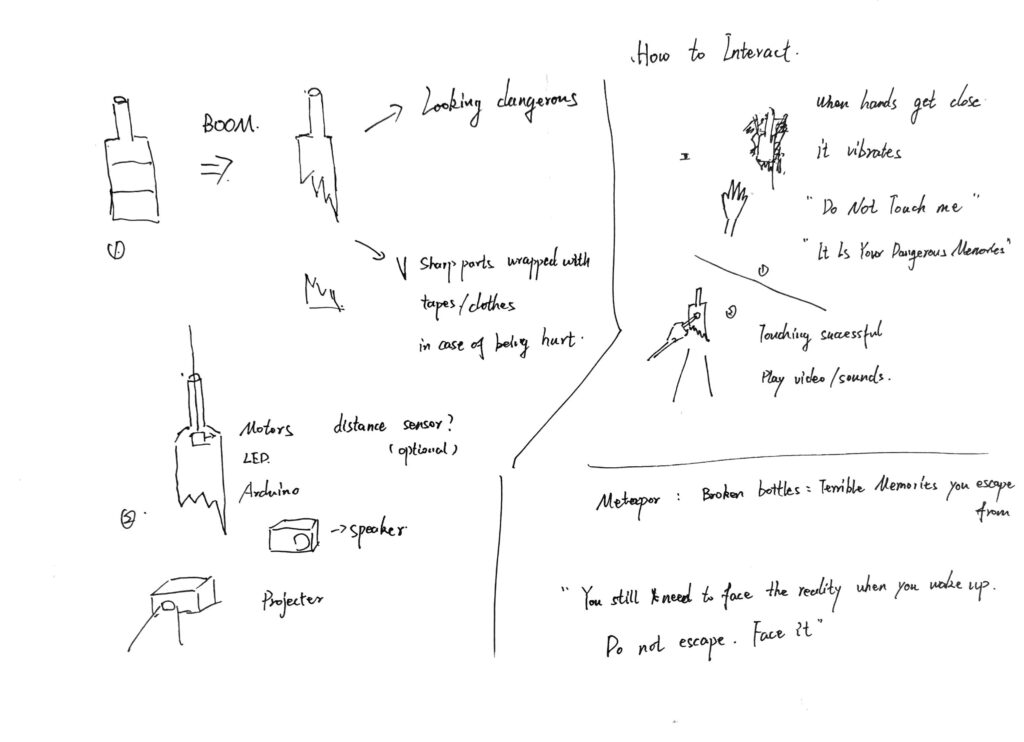 BOOM.
Looking dangerous
①
V Sharp parts wrapped with
tapes/clothes
in case of being hurt.
Motors distance sensor?
(optional)
LED.
Arduino
②
->speaker
Projecter
How to Interact.
when hands get close
it vibrates
"Do Not Touch me"
"It Is Your Dangerous Memories"
①
②
Touching successful
Play video/sounds.
Metaepor : Broken bottles = Terrible Memories you escape
from
"You still need to face the reality when you wake up.
Do not escape. Face it"